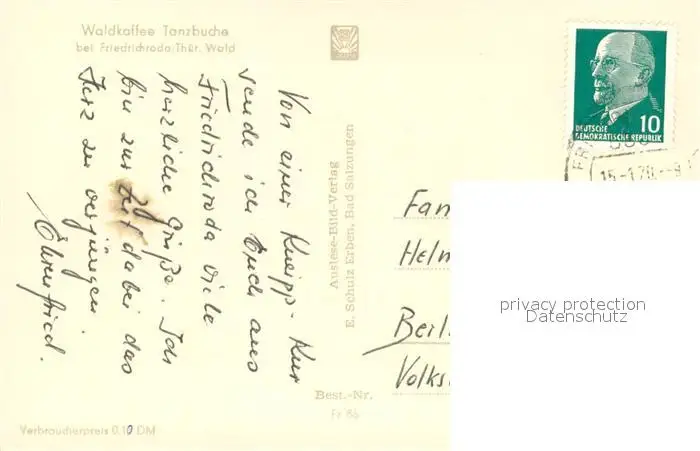 Waldkaffee Tanzbuche
bei Friedrichroda Thür. Wald
Von einer Kneipp-Kur
sende ich Euch aus
Friedrichroda viele
herzliche Grüße. Ich
bin zur Zeit dabei das
Herz zu verjüngen.
Ehrenfried.
Auslese-Bild-Verlag
E. Schulz Erben, Bad Salzungen
Best.-Nr.
Fr 8b
Verbraucherpreis 0,10 DM
10
DEUTSCHE
DEMOKRATISCHE REPUBLIK
FR
15-1.70.-9
Fam
Helm
Berl
Volks
privacy protection
Datenschutz